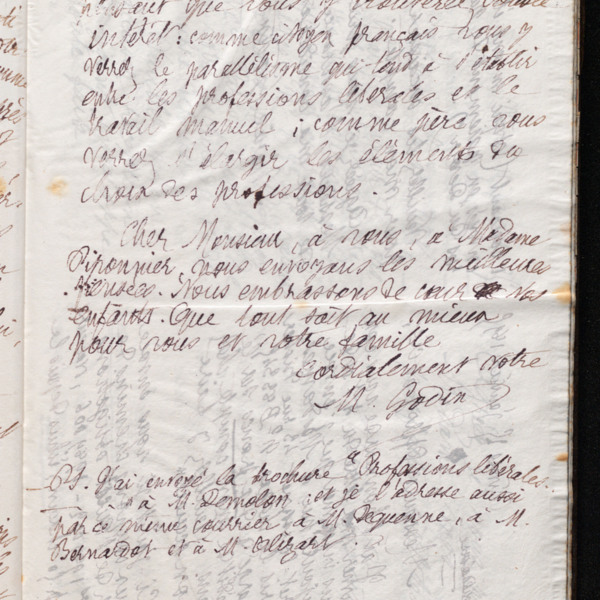 pensant que vous y trouverez double
intérêt : comme citoyen français vous y
verrez le parallélisme qui tend à s'établir
entre les professions libérales et le
travail manuel ; comme père vous
verrez s'élargir les éléments du
choix des professions.
Cher Monsieur, à vous, à Madame
Pironnier, nous envoyons les meilleures
pensées. Nous embrassons de cœur vos
enfants. Que tout soit au mieux
pour vous et votre famille
cordialement votre
M. Godin
PS. J'ai envoyé la brochure "Professions libérales
" à M. Demolon ; et je l'adresse aussi
par ce même courrier à M. Dequenne, à M.
Bernardot et à M. Alizart.